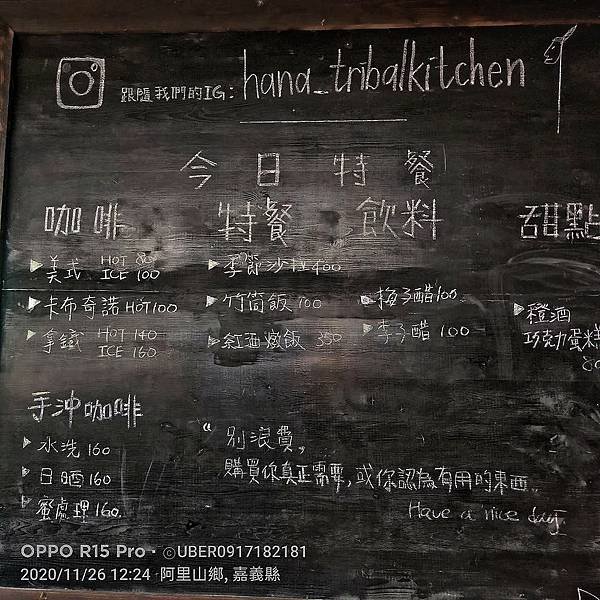 跟隨我們的IG: hana_tribalkitchen
今日特餐
咖啡
美式 HOT 80
ICE 100
卡布奇諾 HOT 100
拿鐵 HOT 140
ICE 160
特餐
季節沙拉 400
竹筒飯 100
紅酒燉飯 350
飲料
梅子醋 100
李子醋 100
甜點
橙酒
巧克力蛋糕
80
手沖咖啡
水洗 160
日晒 160
蜜處理 160.
“別浪費,
購買你真正需要,或你認為有用的東西..
Have a nice day.
OPPO R15 Pro · ©UBER0917182181
2020/11/26 12:24 · 阿里山鄉, 嘉義縣